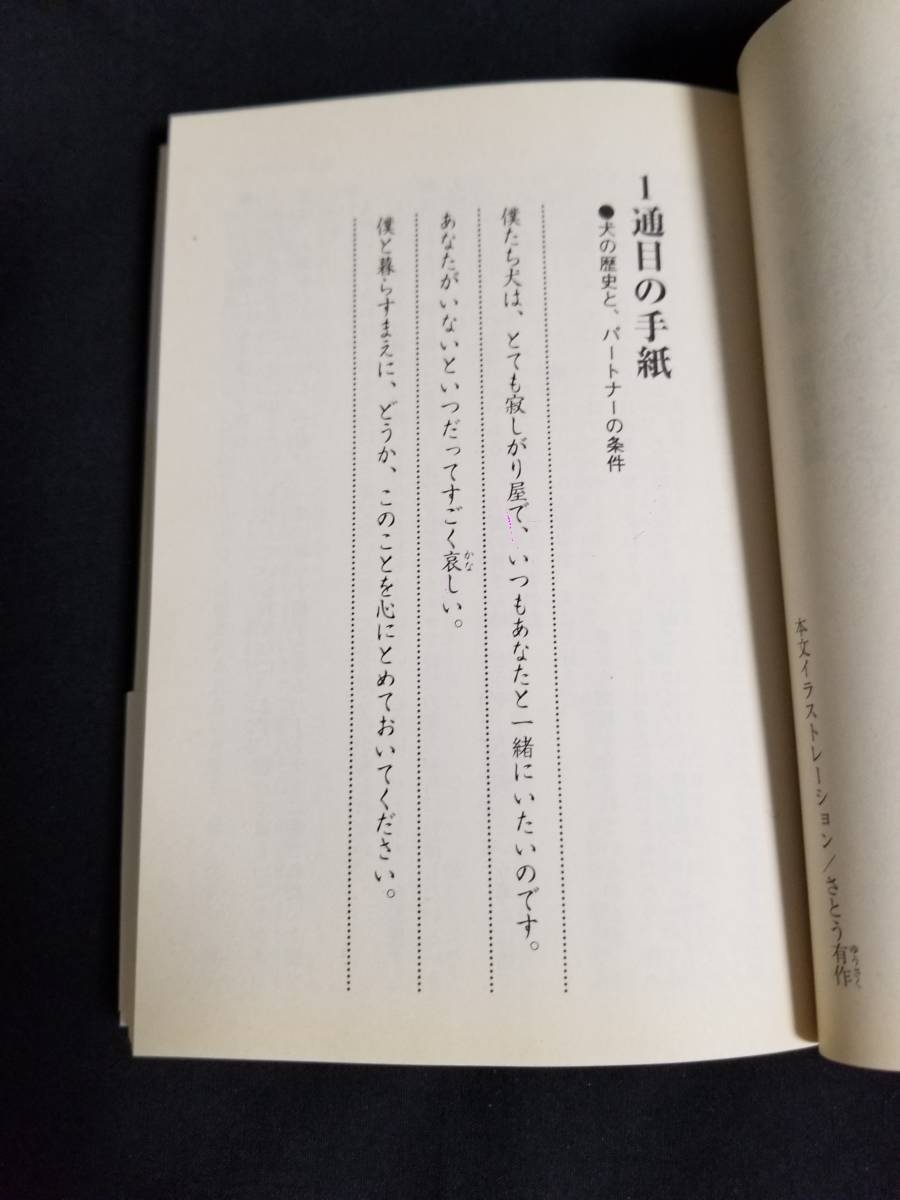 本文イラストレーション/さとう有作
ゆうさく
1通目の手紙
●犬の歴史と、パートナーの条件
僕たち犬は、とても寂しがり屋で、いつもあなたと一緒にいたいのです。
あなたがいないといつだってすごく哀しい。
かな
僕と暮らすまえに、どうか、このことを心にとめておいてください。